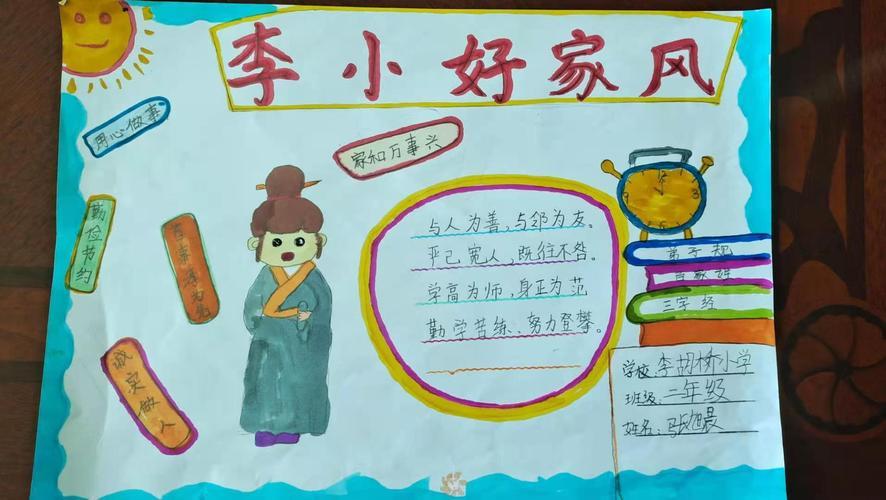 李小好家风
用心做事
家和万事兴
勤俭节约
百事孝为先
诚实做人
与人为善，与邻为友。
严己宽人，既往不咎。
学高为师，身正为范
勤学苦练、努力登攀。
弟子规
百家姓
三字经
学校：李胡桥小学
班级：二年级
姓名：张旭晨